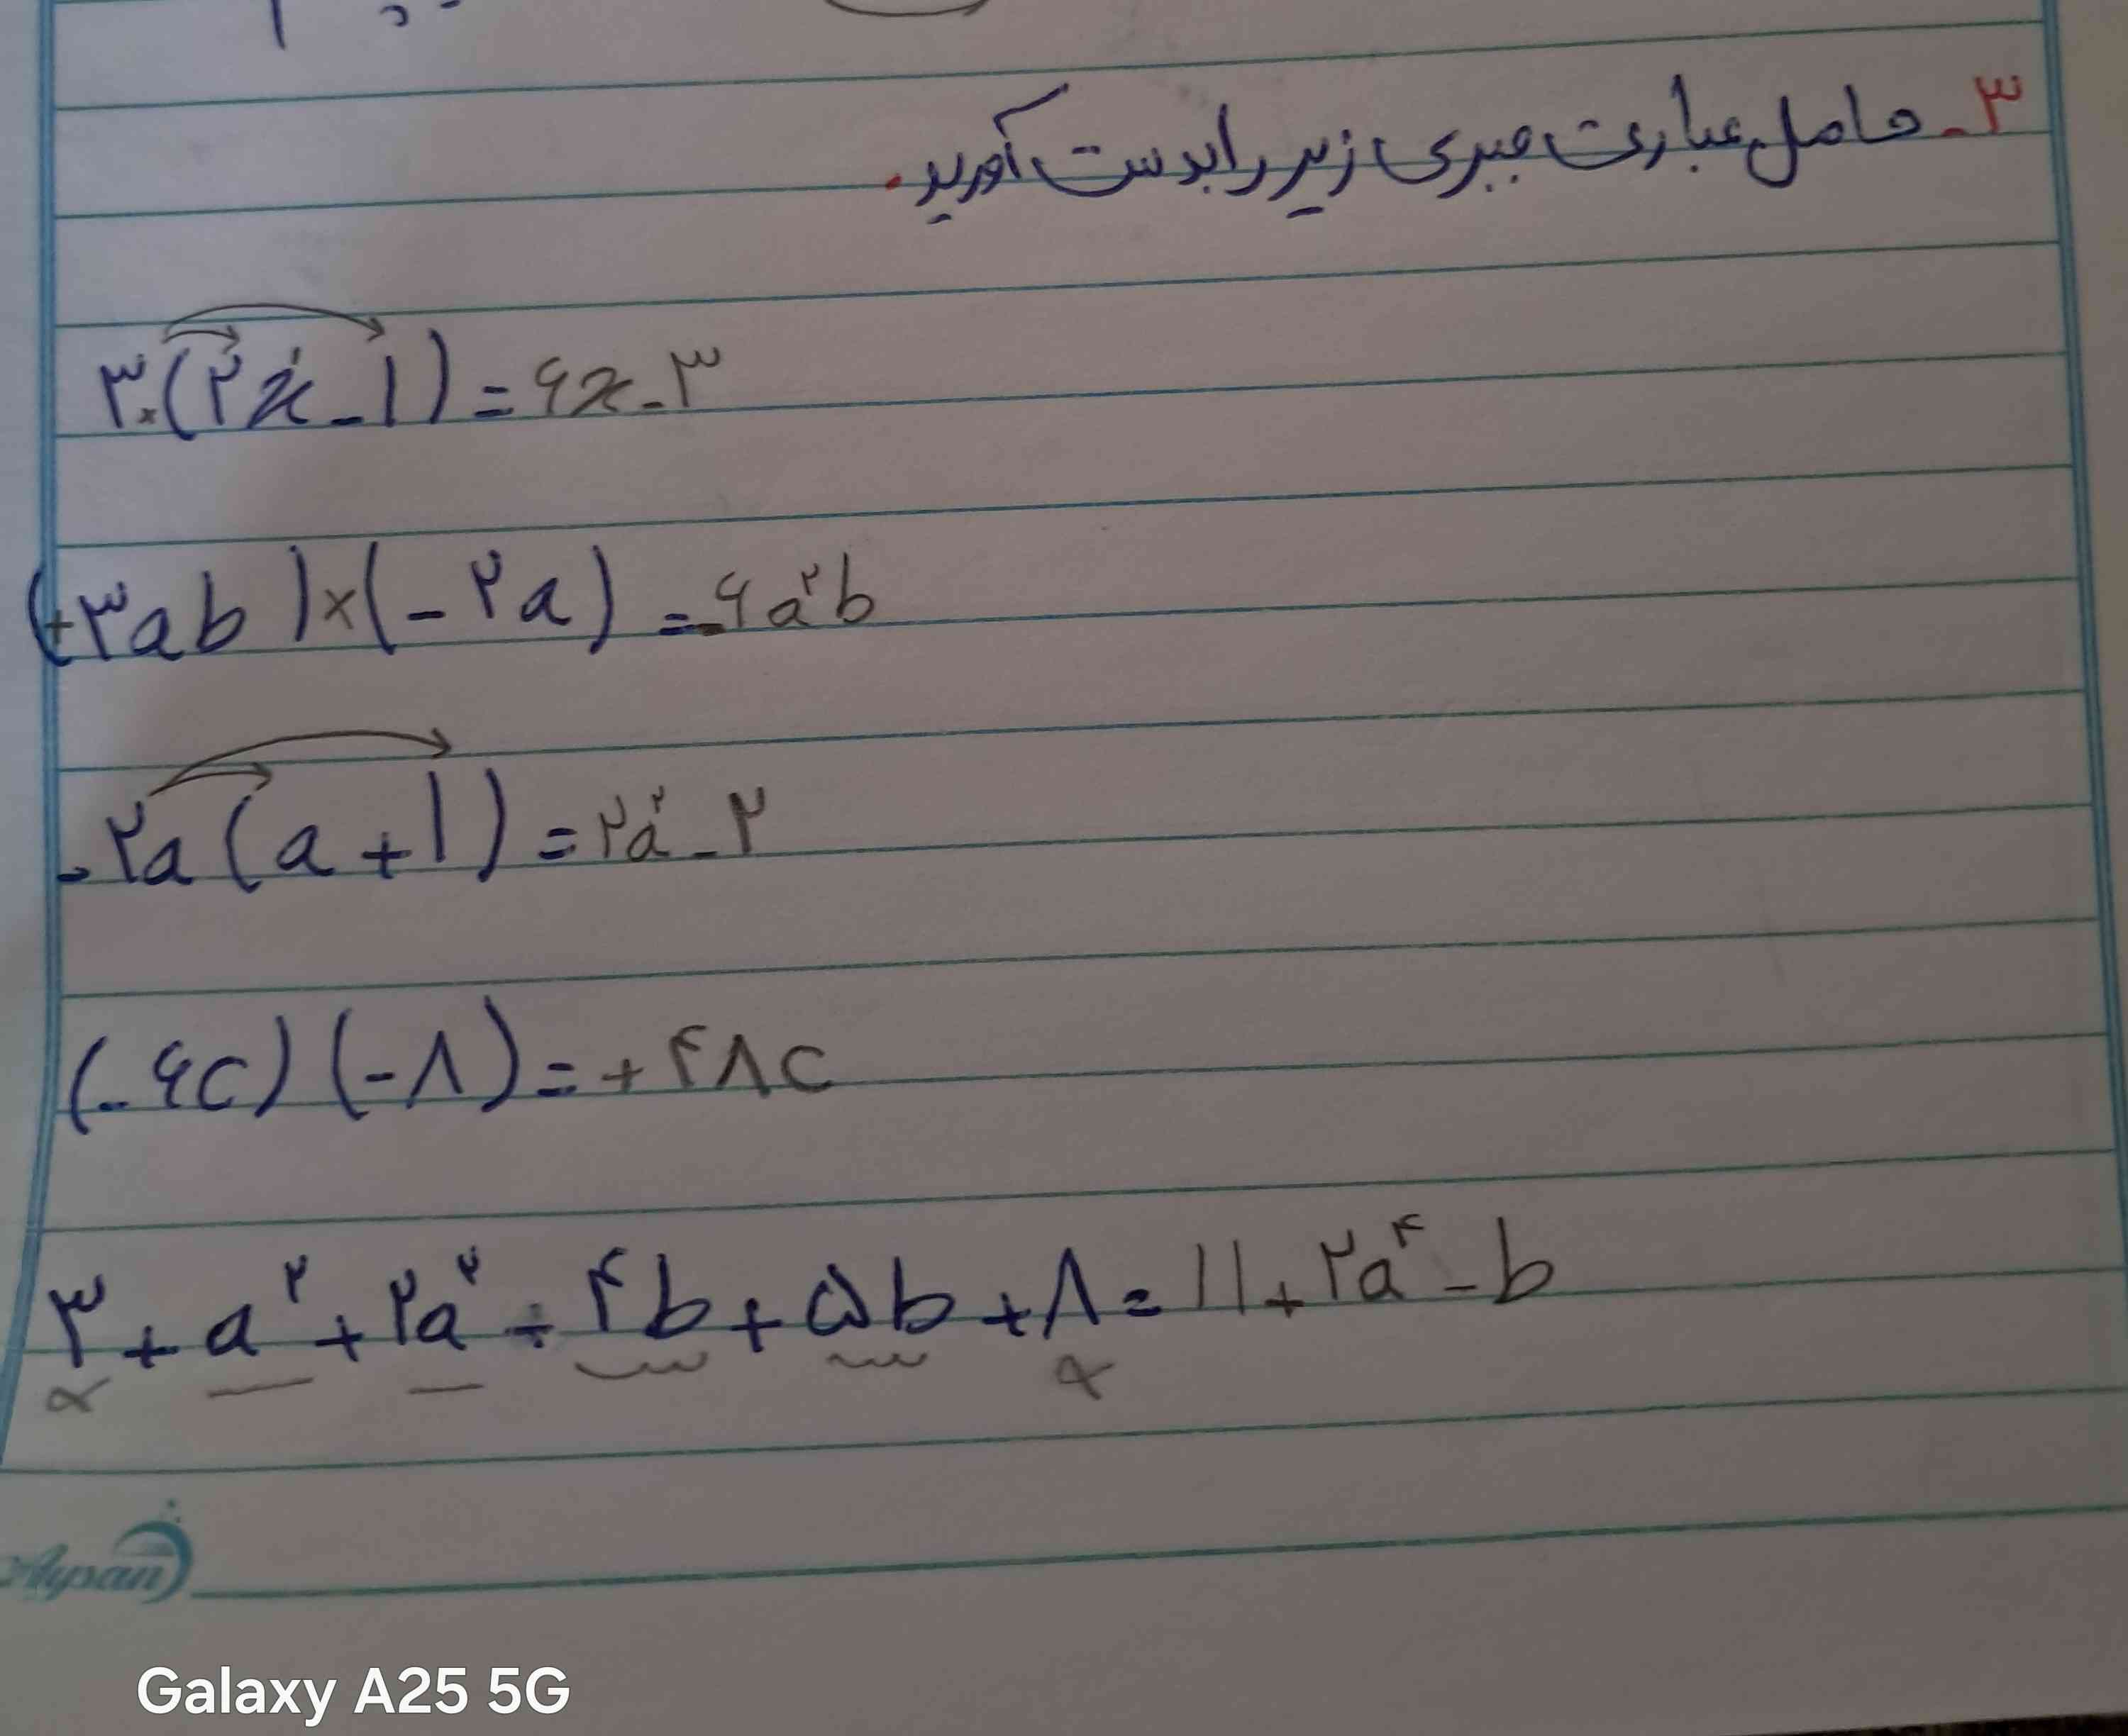 ۳- حاصل عبارت جبری زیر را بدست آورید.
۳×(۲x-۱)=۶x-۳
(+۳ab)×(-۲a)=-۶a²b
-۲a(a+۱)=۲a²-۲
(-۶c)(-۸)=+۴۸c
۳+a²+۲a²-۴b+۵b+۸=۱۱+۲a⁴-b
Aysan
Galaxy A25 5G